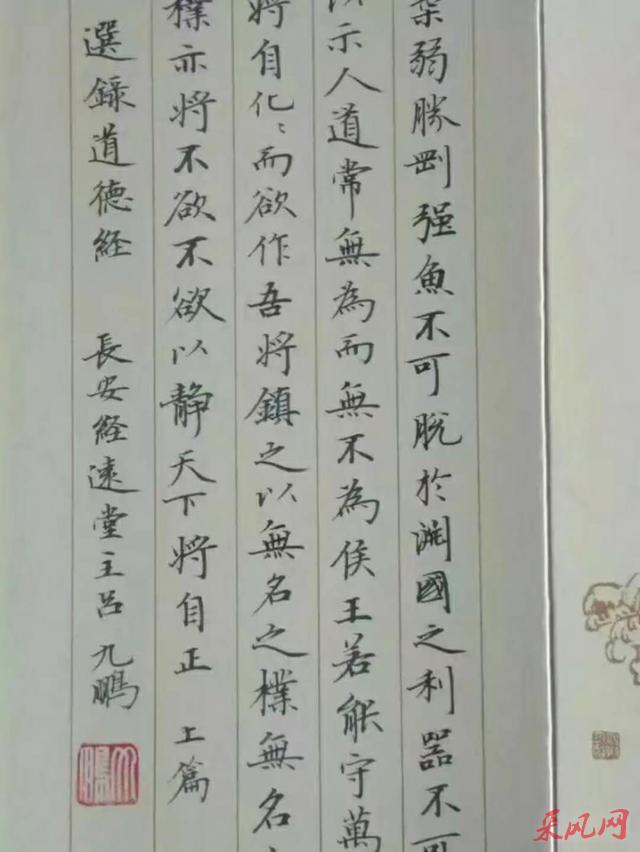 柔弱勝剛强魚不可脫於淵國之利器不可
以示人道常無為而無不為侯王若能守萬
將自化〻而欲作吾將鎮之以無名之樸無名
樸亦將不欲不欲以静天下將自正 上篇
選錄道德経 長安経遠堂主呂九鵬
采风网